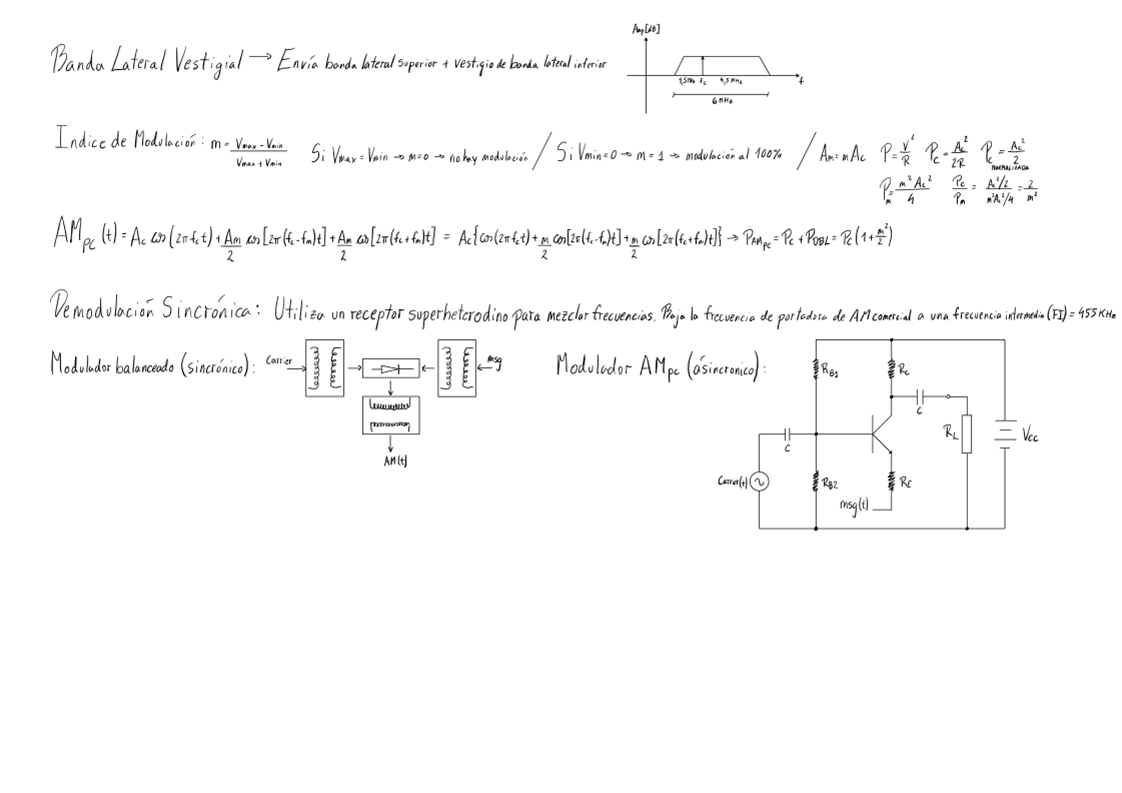 Amp[dB]
Banda Lateral Vestigial → Envía banda lateral superior + vestigio de banda lateral inferior
1,5MHz fc 4,5MHz f
6MHz
Indice de Modulación: m = (Vmax - Vmin)/(Vmax + Vmin) Si Vmax = Vmin → m=0 → no hay modulación / Si Vmin=0 → m=1 → modulación al 100% / Am = mAc P = V²/R Pc = Ac²/2R Pc NORMALIZADA = Ac²/2
Pm = m²Ac²/4 Pc/Pm = (Ac²/2)/(m²Ac²/4) = 2/m²
AMpc(t) = Ac cos(2πfct) + Am/2 cos[2π(fc-fm)t] + Am/2 cos[2π(fc+fm)t] = Ac{cos(2πfct) + m/2 cos[2π(fc-fm)t] + m/2 cos[2π(fc+fm)t]} → PAMpc = Pc + PDBL = Pc(1+m²/2)
Demodulación Sincrónica: Utiliza un receptor superheterodino para mezclar frecuencias. Baja la frecuencia de portadora de AM comercial a una frecuencia intermedia (FI) = 455KHz
Modulador balanceado (sincrónico): Carrier msg
AM(t)
Modulador AMpc (ásincronico):
RB1 RC
C
RL Vcc
C
Carrier(t) RB2 RE
msg(t)